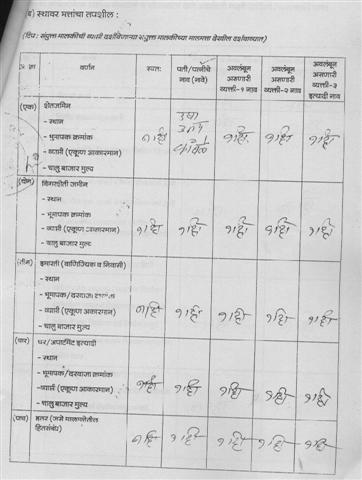 (ब) स्थावर मत्तांचा तपशील :
(टिप : संयुक्त मालकीची व्याप्ती दर्शविणाऱ्या संयुक्त मालकीच्या मालमत्ता देखील दर्शवाव्यात)
अ. क्रा वर्णन स्वतः पती/पत्नीचे नाव (नावे) अवलंबून असणारी व्यक्ती-१ नाव अवलंबून असणारी व्यक्ती-२ नाव अवलंबून असणारी व्यक्ती-३ इत्यादी नाव
(एक) शेतजमिन
- स्थान
- भुमापक क्रमांक
- व्याप्ती (एकूण आकारमान)
- चालु बाजार मुल्य
नाही नाही नाही नाही
(दोन) बिगरशेती जमीन
- स्थान
- भूमापक क्रमांक
- व्याप्ती (एकूण आकारमान)
- चालु बाजार मुल्य
नाही नाही नाही नाही नाही
(तीन) इमारती (वाणिज्यिक व निवासी)
- स्थान
- भूमापक/दरवाजा क्रमांक
- व्याप्ती (एकूण अकारमान)
- चालू बाजार मुल्य
नाही नाही नाही नाही नाही
(चार) घर/अपार्टमेंट इत्यादी
- स्थान
- भूमापक/दरवाजा क्रमांक
-व्याप्ती (एकूण आकारमान)
- चालु बाजार मुल्य
नाही नाही नाही नाही नाही
(पाच) इतर (जसे मालमत्तेतील
हितसंबंध)
नाही नाही नाही नाही नाही